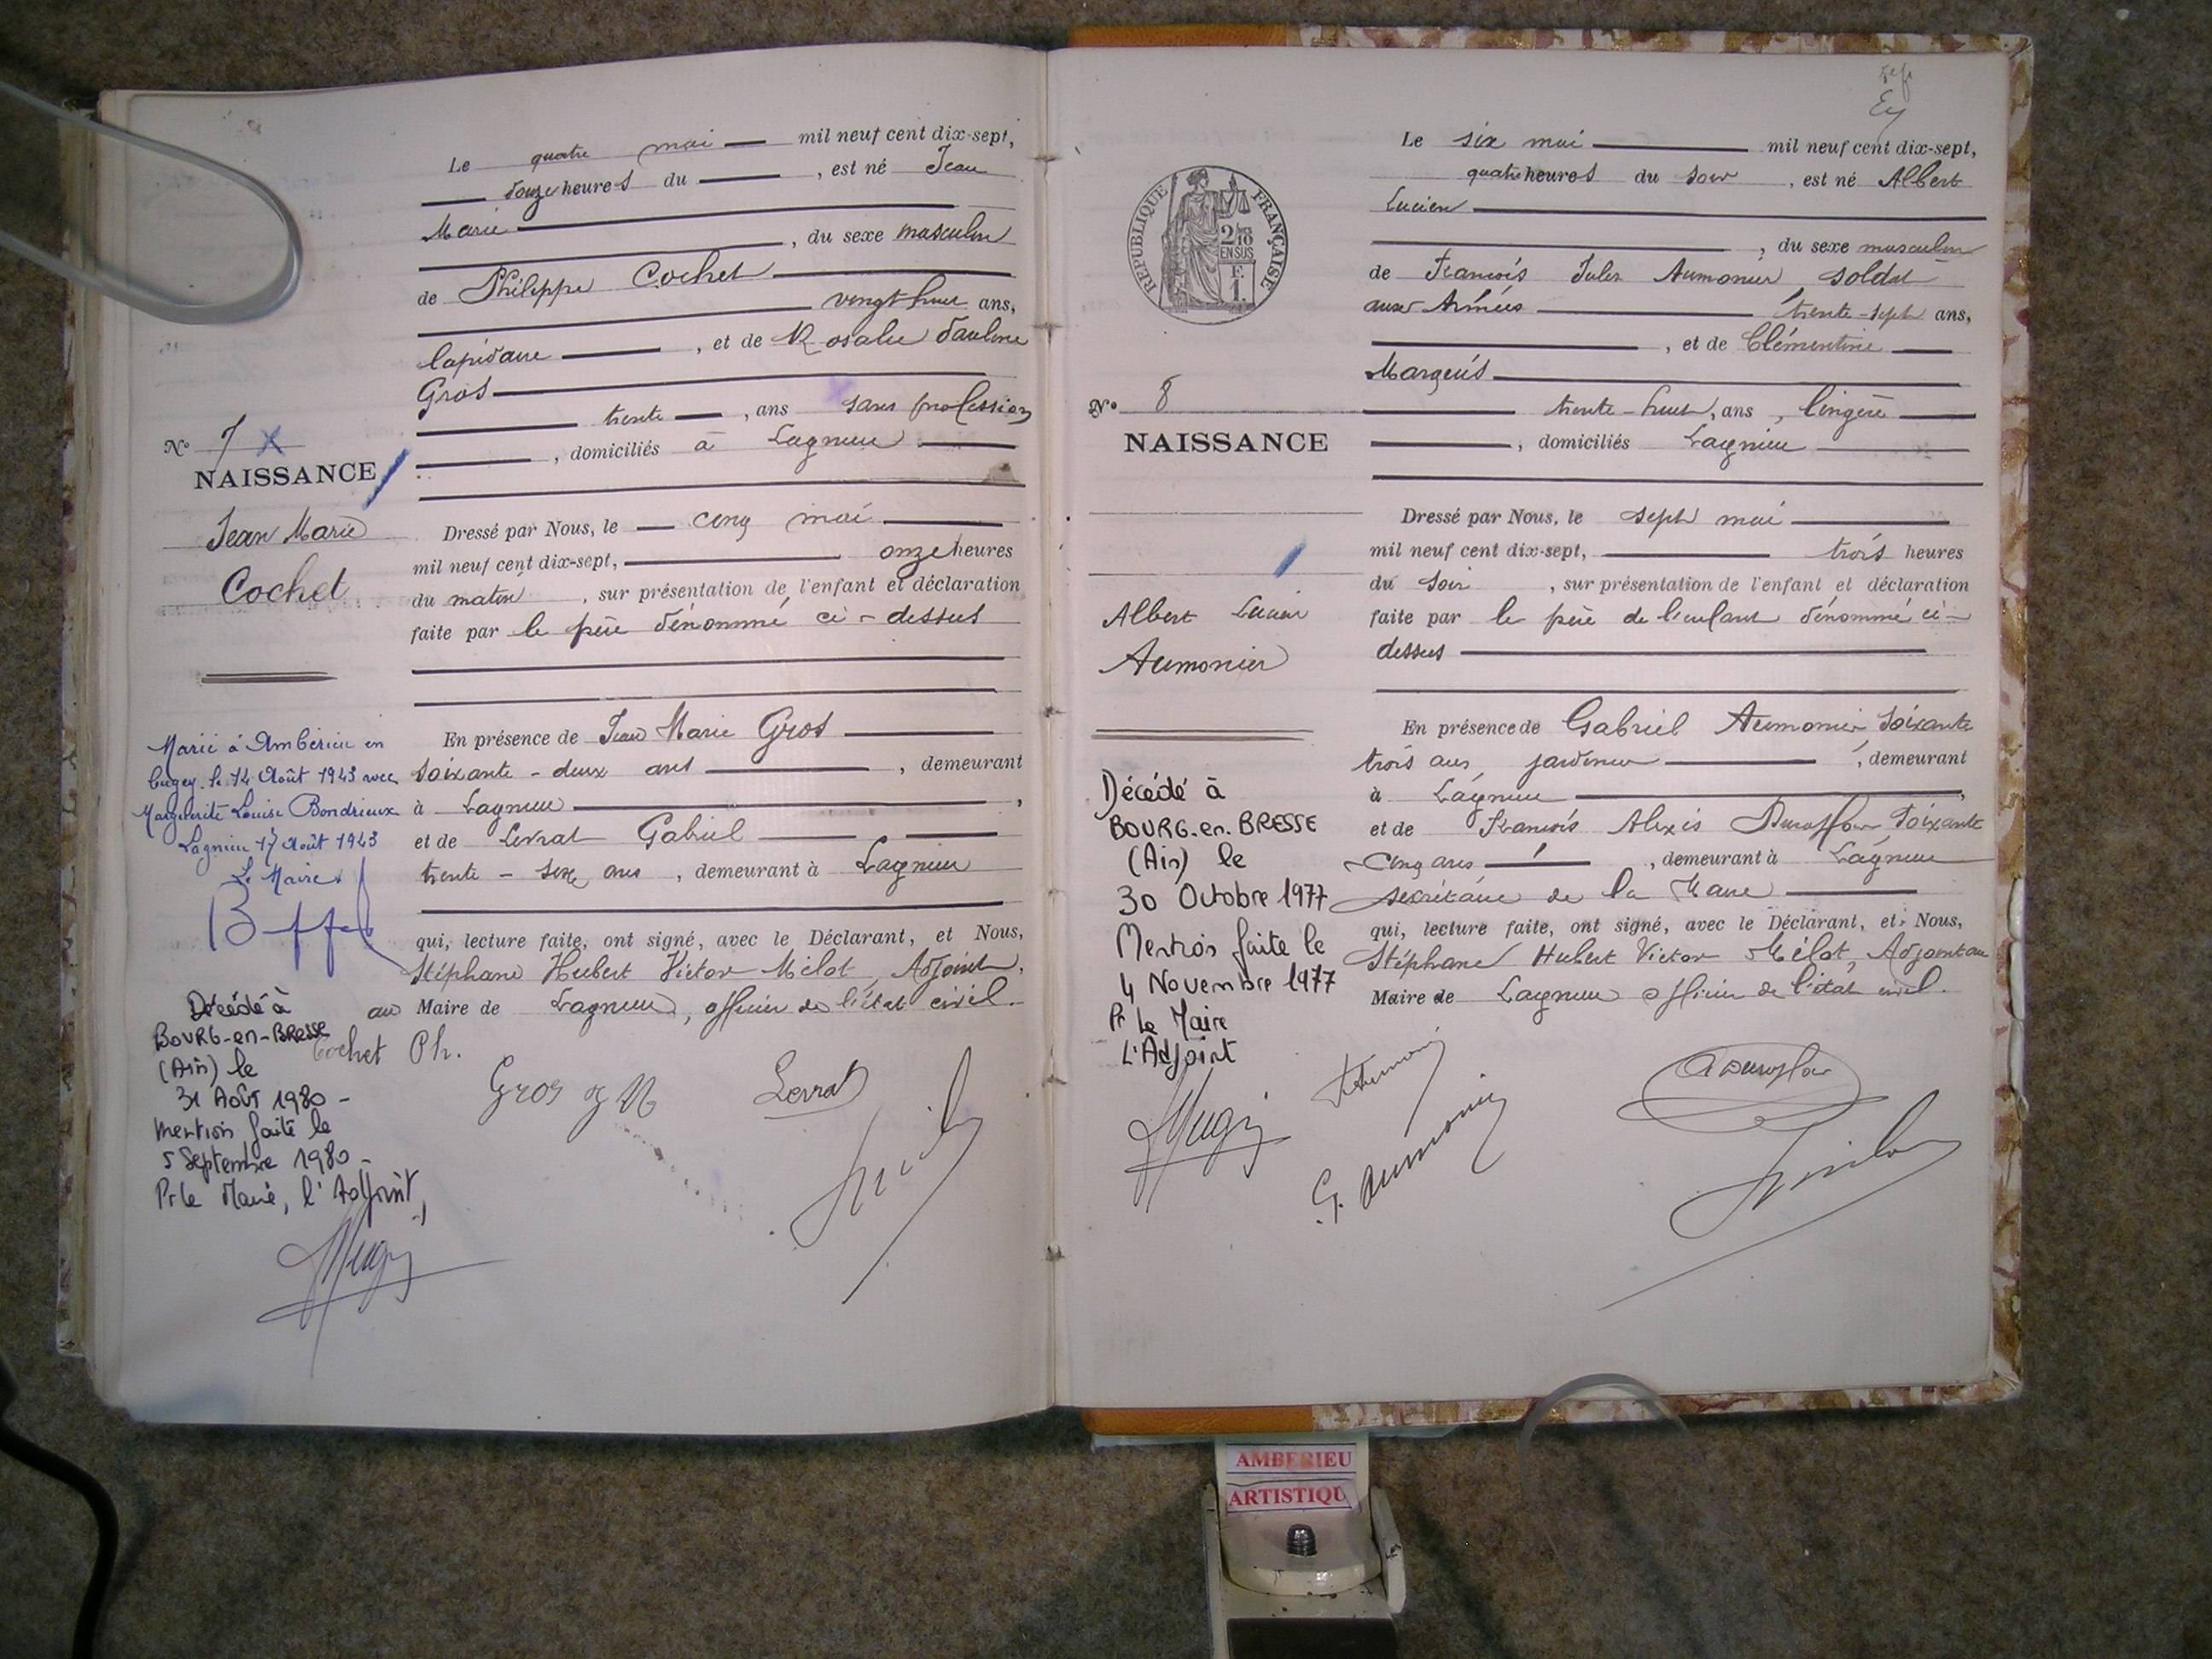 Le quatre mai mil neuf cent dix-sept,
douze heures du , est né Jean
Marie
, du sexe masculin
de Philippe Cochet
vingt huit ans,
lapidaire , et de Rosalie Pauline
Gros
trente , ans sans profession
, domiciliés à Lagnieu
N° 7
NAISSANCE
Jean Marie
Cochet
Dressé par Nous, le cinq mai
mil neuf cent dix-sept, onze heures
du matin , sur présentation de l'enfant et déclaration
faite par le père dénommé ci-dessus
En présence de Jean Marie Gros
soixante-deux ans , demeurant
à Lagnieu ,
et de Levrat Gabriel
trente-six ans , demeurant à Lagnieu
qui, lecture faite, ont signé, avec le Déclarant, et Nous,
Stéphane Hubert Victor Mélot, Adjoint,
au Maire de Lagnieu, officier de l'état civil.
Marié à Ambérieu en
Bugey le 14 Août 1943 avec
Marguerite Louise Bondrieux
Lagnieu 17 Août 1943
Le Maire
Décédé à
BOURG-en-BRESSE
(Ain) le
31 AOÛT 1980 -
Mention faite le
5 Septembre 1980 -
Pr le Maire, l'Adjoint,
Cochet Ph.
Gros J M
Levrat
REPUBLIQUE FRANÇAISE
2/10
EN SUS
F.
1.
N° 8
NAISSANCE
Albert Lucien
Aumonier
Le six mai mil neuf cent dix-sept,
quatre heures du soir , est né Albert
Lucien
, du sexe masculin
de François Jules Aumonier soldat
aux Armées trente-sept ans,
, et de Clémentine
trente-huit, ans , lingère
, domiciliés Lagnieu
Dressé par Nous, le sept mai
mil neuf cent dix-sept, trois heures
du soir , sur présentation de l'enfant et déclaration
faite par le père de l'enfant dénommé ci-
dessus
En présence de Gabriel Aumonier soixante
trois ans, jardinier , demeurant
à Lagnieu ,
et de François Alexis Duroflour soixante
cinq ans , demeurant à Lagnieu
secrétaire de la Mairie
qui, lecture faite, ont signé, avec le Déclarant, et Nous,
Stéphane Hubert Victor Mélot, Adjoint au
Maire de Lagnieu officier de l'état civil.
Décédé à
BOURG-en-BRESSE
(Ain) le
30 Octobre 1977
Mention faite le
4 Novembre 1977
Pr Le Maire
L'Adjoint
G. Aumonier
A Duroflour
AMBERIEU
ARTISTIQU